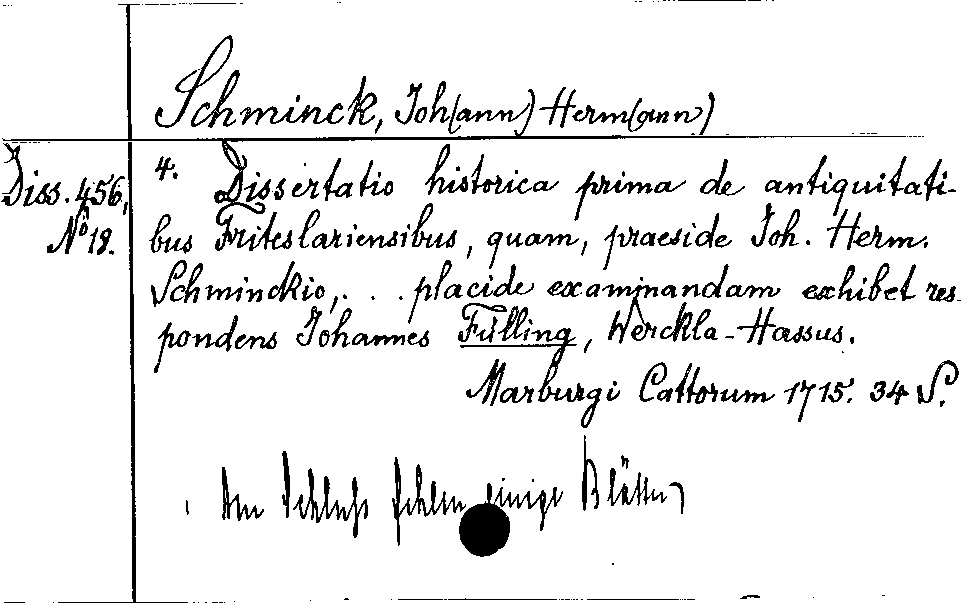 Schminck, Joh(ann) Herm(ann)
Diss. 456,
No 19.
4. Dissertatio historica prima de antiquitati-
bus Friteslariensibus, quam, praeside Joh. Herm.
Schminckio, . . . placide examinandam exhibet res-
pondens Johannes Fülling, Werckla-Hassus.
Marburgi Cattorum 1715. 34 S.
Am Schluß fehlen einige Blätter